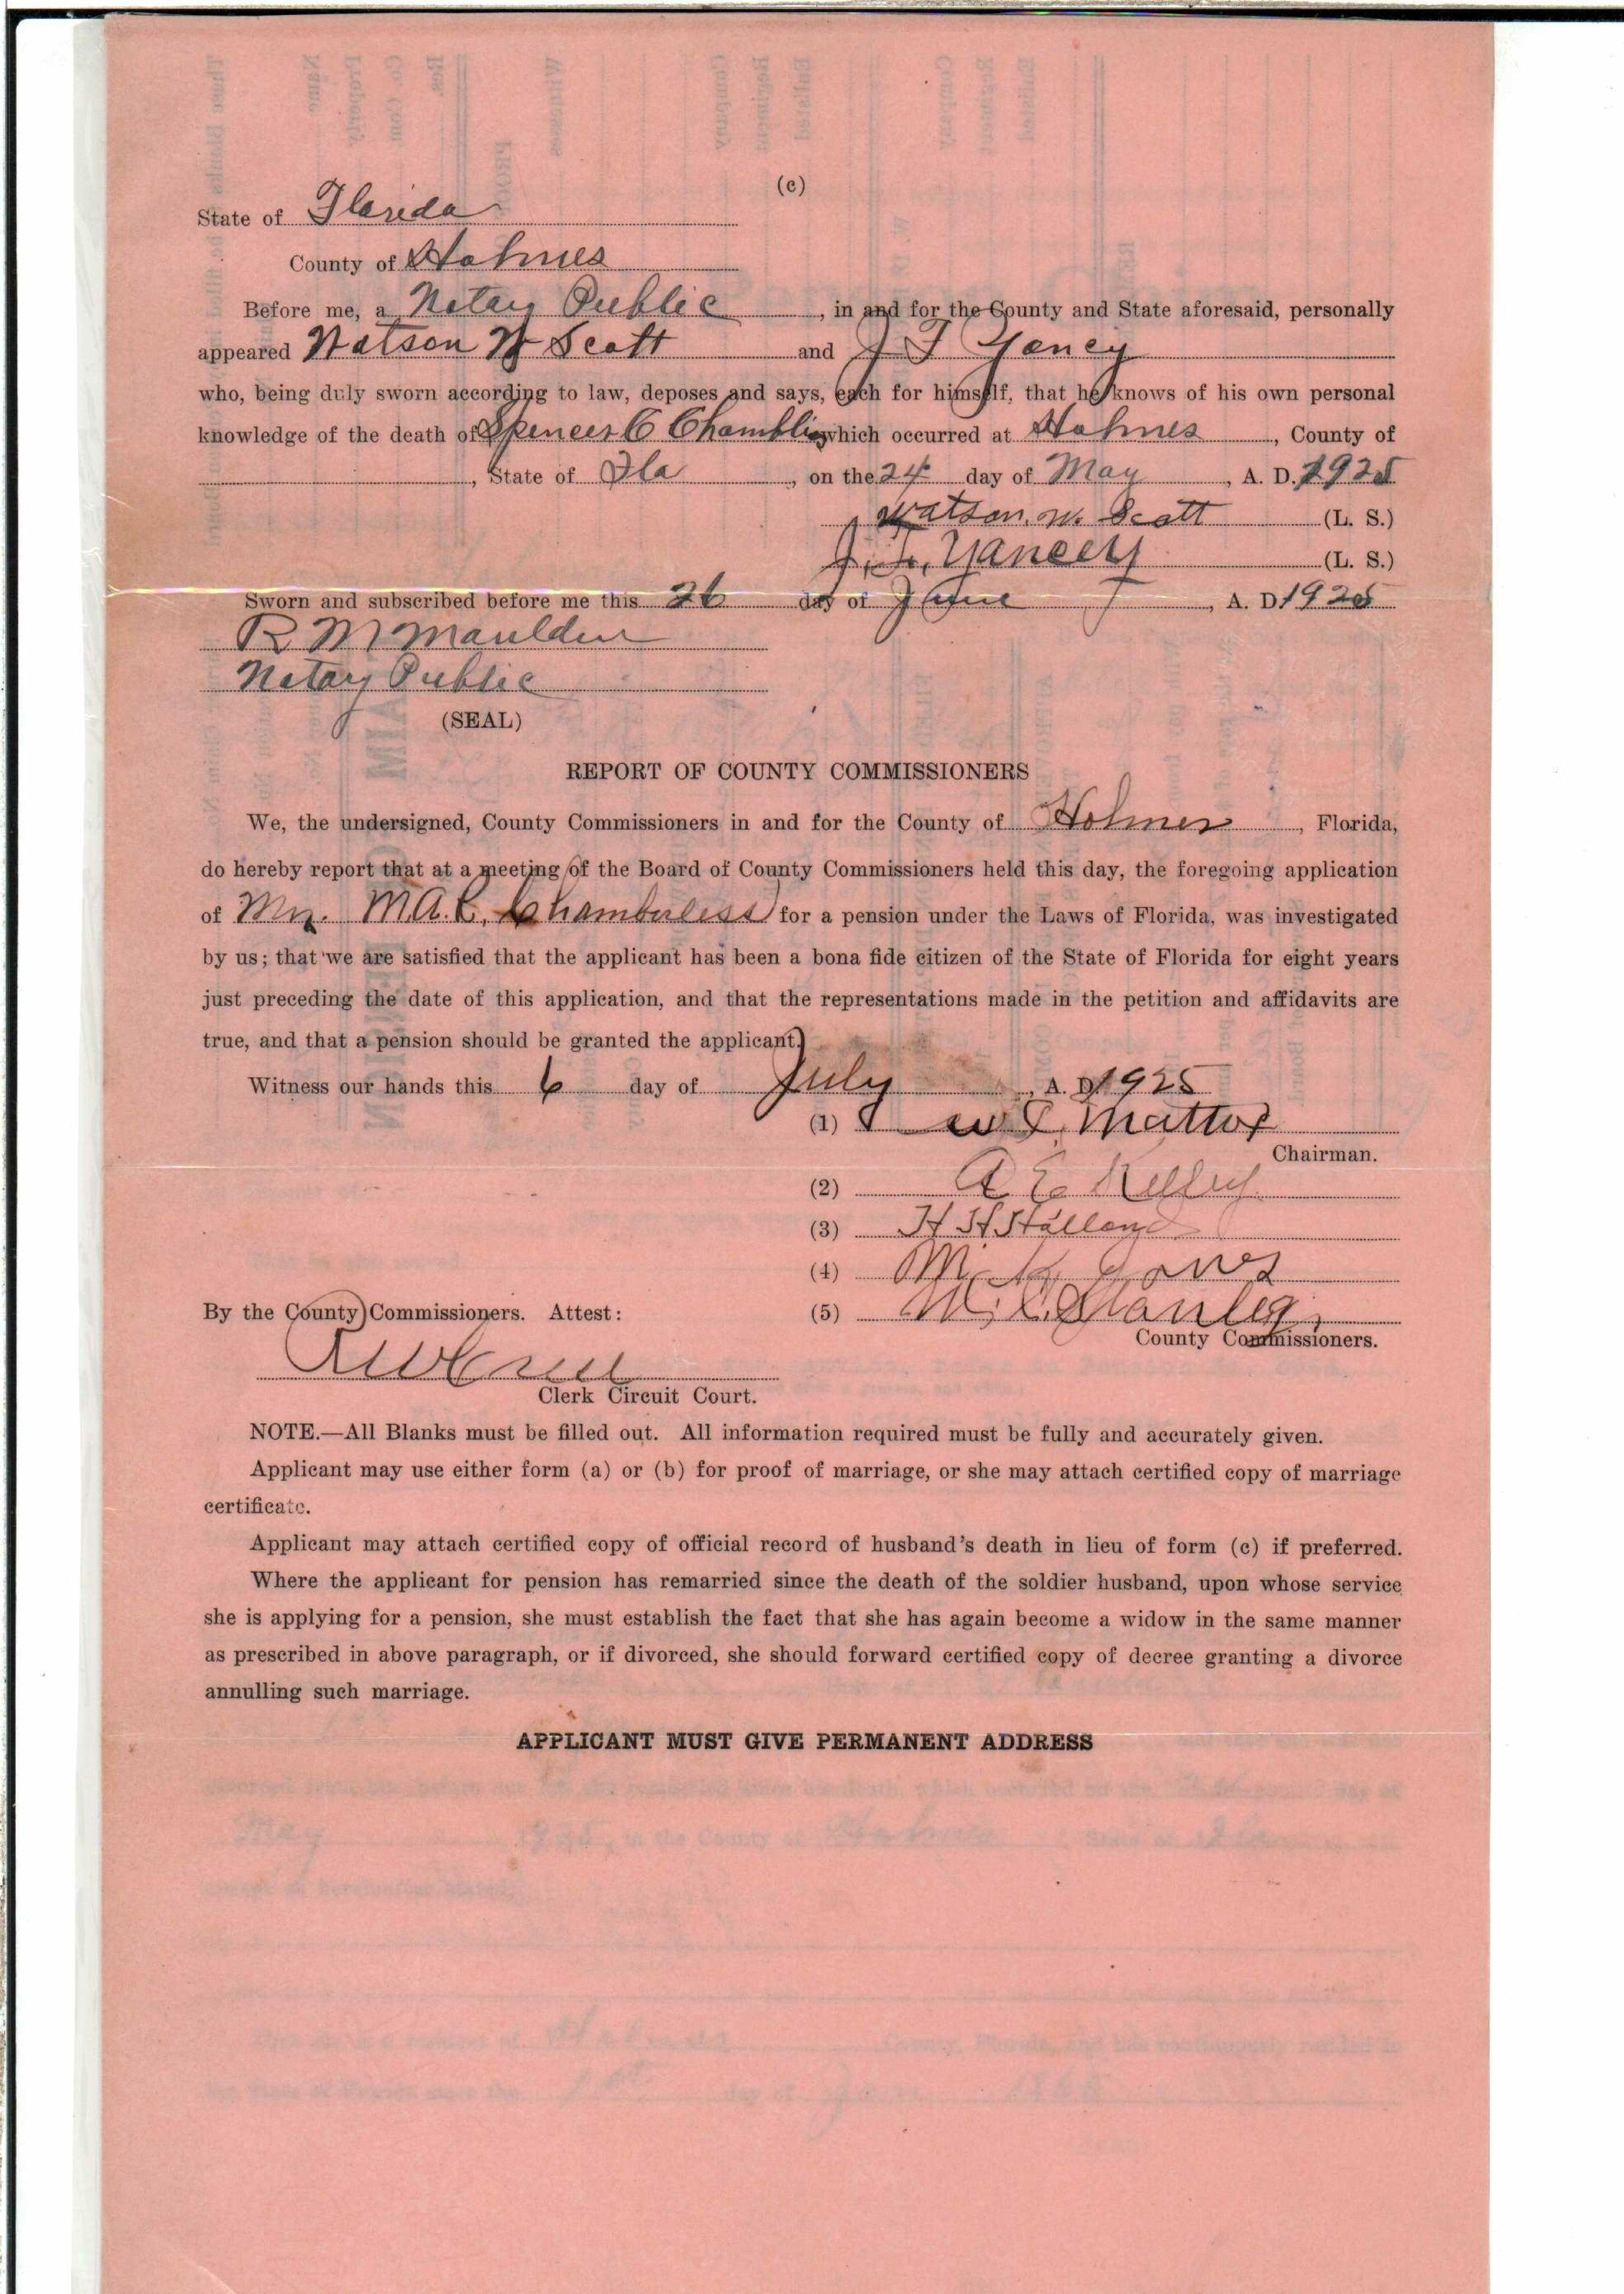 (c)
State of Florida
County of Holmes
Before me, a Notary Public, in and for the County and State aforesaid, personally
appeared Watson W Scott and J T Yancy
who, being duly sworn according to law, deposes and says, each for himself, that he knows of his own personal
knowledge of the death of Spencer C Chambliss which occurred at Holmes, County of
, State of Fla, on the 24 day of May, A. D. 1925
Watson. W. Scott (L. S.)
J. T. Yancey (L. S.)
Sworn and subscribed before me this 26 day of June, A. D 1925
R M Mauldin
Notary Public
(SEAL)
REPORT OF COUNTY COMMISSIONERS
We, the undersigned, County Commissioners in and for the County of Holmes, Florida,
do hereby report that at a meeting of the Board of County Commissioners held this day, the foregoing application
of Mrs. M.A.E. Chamberless for a pension under the Laws of Florida, was investigated
by us; that we are satisfied that the applicant has been a bona fide citizen of the State of Florida for eight years
just preceding the date of this application, and that the representations made in the petition and affidavits are
true, and that a pension should be granted the applicant.
Witness our hands this 6 day of July, A. D 1925
(1) Mattox
Chairman.
(2) A E Kelley
(3) H H
(4) M. K. Jones
By the County Commissioners. Attest: (5) Stanley
County Commissioners.
Clerk Circuit Court.
NOTE.—All Blanks must be filled out. All information required must be fully and accurately given.
Applicant may use either form (a) or (b) for proof of marriage, or she may attach certified copy of marriage
certificate.
Applicant may attach certified copy of official record of husband's death in lieu of form (c) if preferred.
Where the applicant for pension has remarried since the death of the soldier husband, upon whose service
she is applying for a pension, she must establish the fact that she has again become a widow in the same manner
as prescribed in above paragraph, or if divorced, she should forward certified copy of decree granting a divorce
annulling such marriage.
APPLICANT MUST GIVE PERMANENT ADDRESS